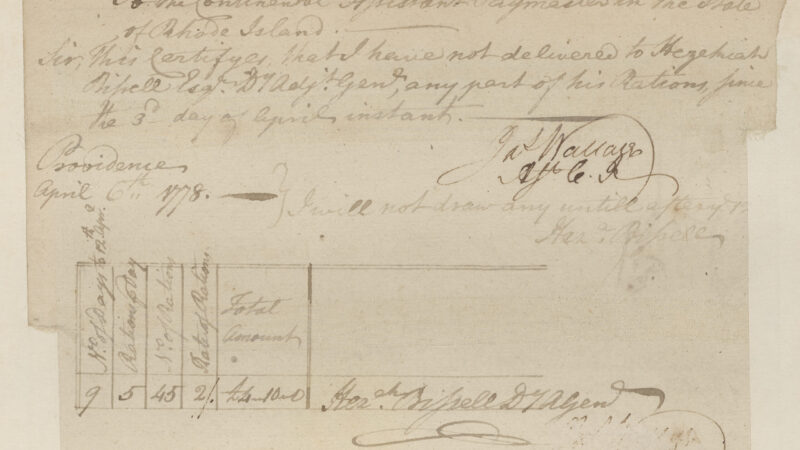 To the Continental Assistant Paymaster in the State
of Rhode Island.
Sir, This Certifyes, that I have not delivered to Hezehiah
Bissell Esqr. Dy Adjt. Genl, any part of his Rations, since
the 3d day of April instant.
Jas. Wallace
Asst. C. I
Providence
April 6th 1778.
I will not draw any untill after ye 12
Heza. Bissell
No. of Days to 12 Apr.
Rations pr Day
No. of Rations
Rate of Rations
Total
Amount
9 5 45 2/. £4-10-0 Hezeh Bissell Dy A Genl